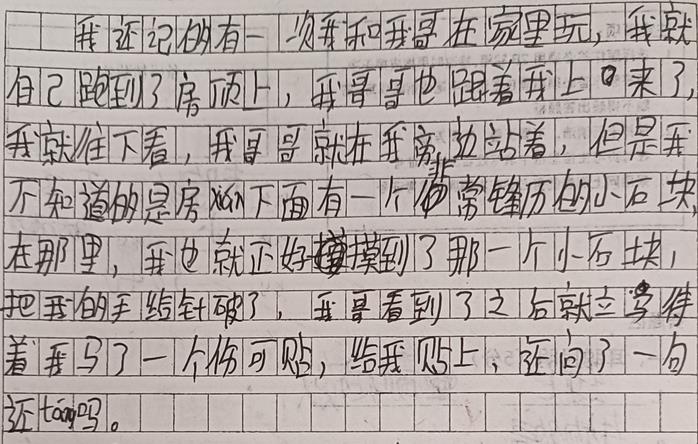 我还记的有一次我和我哥在家里玩，我就
自己跑到了房顶上，我哥哥也跟着我上来了，
我就往下看，我哥哥就在我旁边站着，但是我
不知道的是房xian下面有一个非常锋历的小石块，
在那里，我也就正好摸到了那一个小石块，
把我的手给针破了，我哥看到了之后就立马待
着我马了一个伤可贴，给我贴上，还问了一句
还tòng吗。